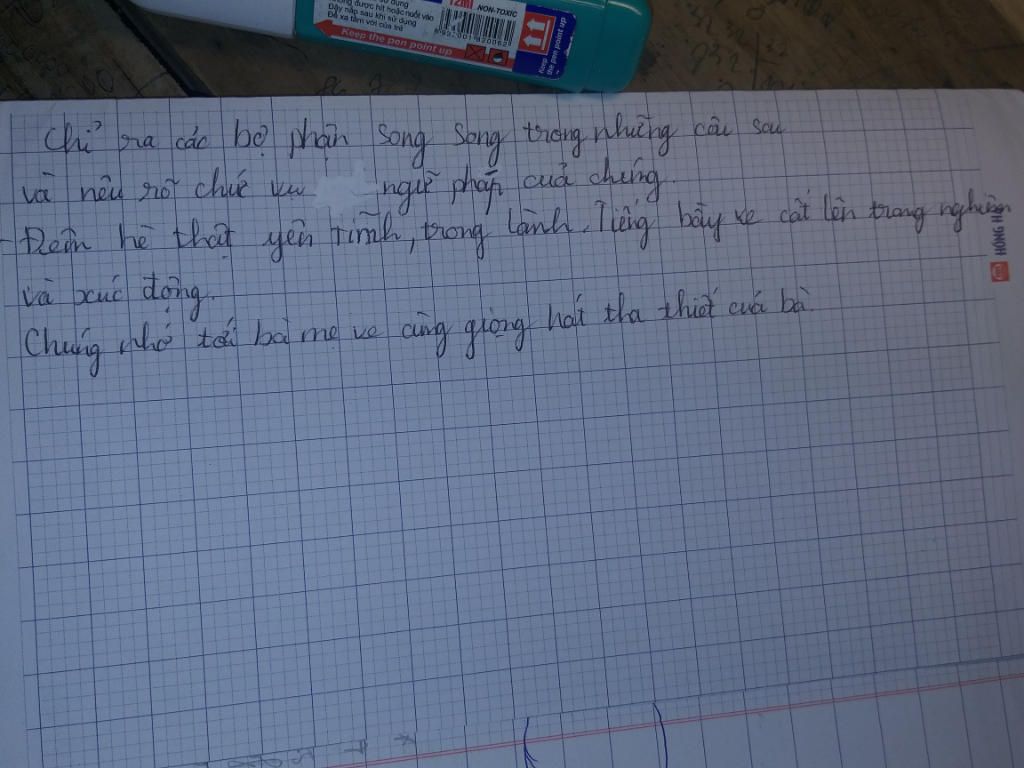 12ml NON-TOXIC
không được hít hoặc nuốt vào
Đậy nắp sau khi sử dụng
Để xa tầm với của trẻ
Keep the pen point up
Keep the pen point up
Chỉ ra các bộ phận song song trong những câu sau
và nêu rõ chức vụ ngữ pháp của chúng.
- Đêm hè thật yên tĩnh, trong lành. Tiếng bầy ve cất lên trang nghiêm
và xúc động.
Chúng nhớ tới bà mẹ ve cùng giọng hát tha thiết của bà.
HỒNG HÀ